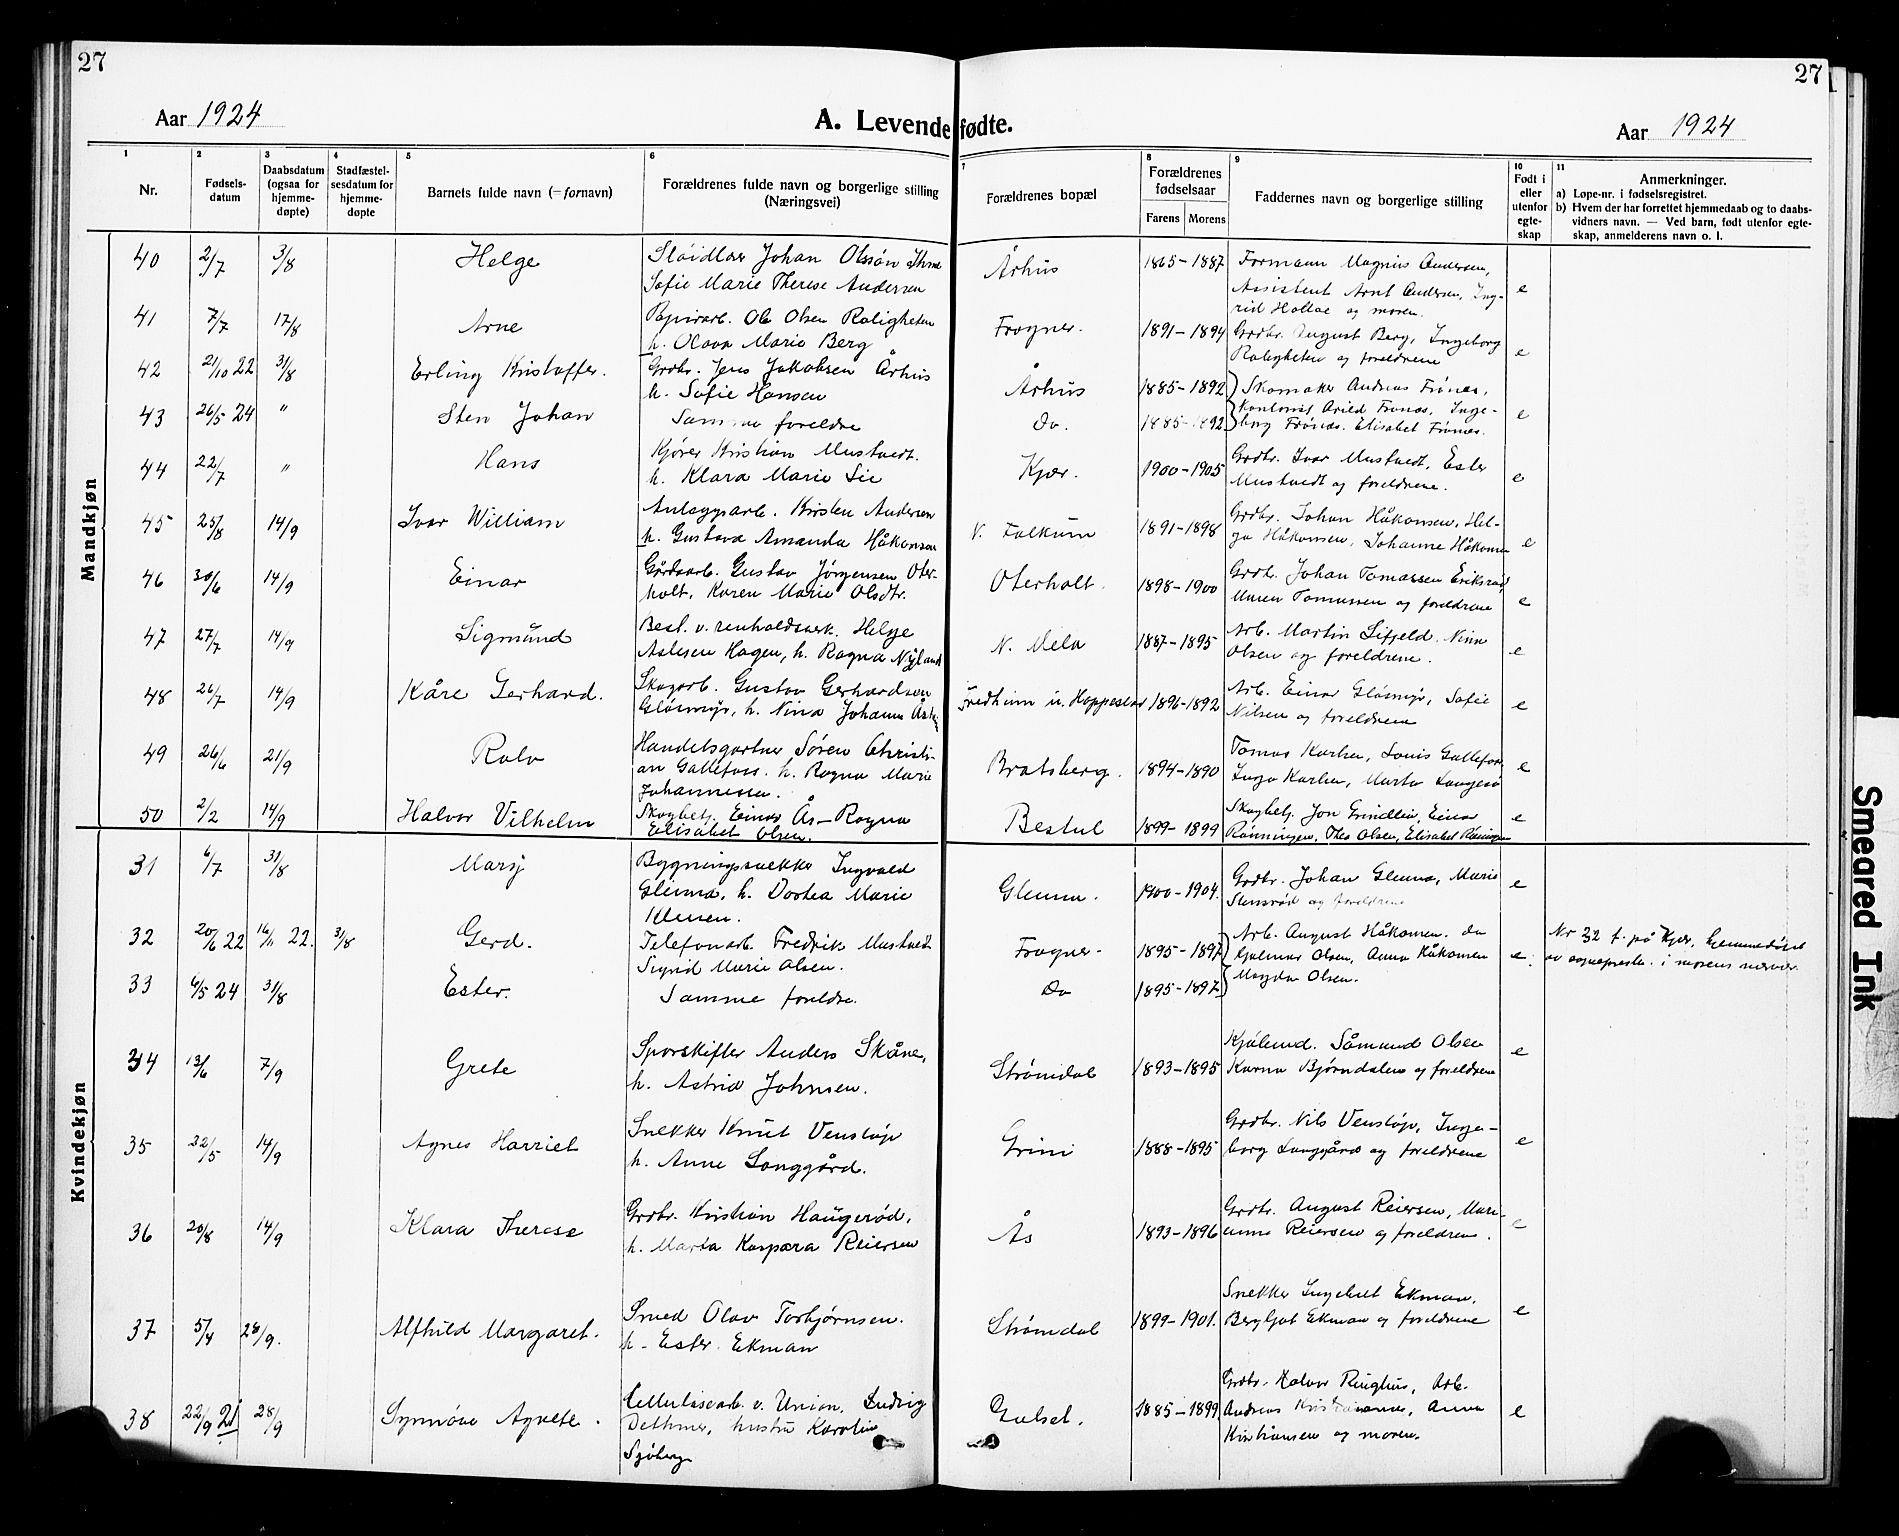 27
27
Aar 1924
A. Levendefødte.
Aar 1924
1
2
3
4
5
6
7
8
9
10
11
Nr.
Fødsels-
datum
Daabsdatum
(ogsaa for
hjemme-
døpte)
Stadfæstel-
sesdatum for
hjemme-
døpte
Barnets fulde navn (=fornavn)
Forældrenes fulde navn og borgerlige stilling
(Næringsvei)
Forældrenes bopæl
Forældrenes
fødselsaar
Farens
Morens
Faddernes navn og borgerlige stilling
Født i
eller
utenfor
egte-
skap
Anmerkninger.
a) Løpe-nr. i fødselsregistret.
b) Hvem der har forrettet hjemmedaab og to daabs-
vidners navn. — Ved barn, født utenfor egte-
skap, anmelderens navn o. l.
Mandkjøn
40 2/7 3/8 Helge Sløidlær Johan Olssøn Århus 1865-1887 Formann Magnus Andersen, e
Sofie Marie Therese Andersen Assistent Arnt Andersen, Ing-
rid Hollae og moren.
41 7/7 17/8 Arne Papirarb. Ole Olsen Roligheten Frogner. 1891-1894 Grdbr. August Berg, Ingeborg e
h. Olava Marie Berg Roligheten og foreldrene
42 21/10 22 31/8 Erling Kristoffer. Grdbr. Jens Jakobsen Århus Århus 1885-1892 Skomaker Andreas Frønæs,
h. Sofie Hansen
43 26/5 24 " Sten Johan Samme foreldre Do. 1885-1892 Kontorist Arild Frønæs, Inge- e
borg Frønæs. Elisabet Frønæs.
44 22/7 " Hans Kjører Kristian Mustvedt. Kjær. 1900-1905 Grdbr. Ivar Mustvedt, Ester e
h. Klara Marie Lie Mustvedt og foreldrene.
45 25/8 14/9 Ivar William Anlegsarb. Kirsten Andersen N. Falkum 1891-1898 Grdbr. Johan Håkonsen, Hel- e
h. Gustava Amanda Håkonsen ga Håkonsen, Johanne Håkonsen
46 30/6 14/9 Einar Gårdsarb. Gustav Jørgensen Oter- Oterholt. 1898-1900 Grdbr. Johan Tomassen Eriksrød e
holt, Karen Marie Olsdtr. Maren Tomassen og foreldrene
47 27/7 14/9 Sigmund Best. v. renholdsverk. Helge N. Mela 1887-1895 Arb. Martin Lifjeld. Nina e
Aslesen Hagen, h. Ragna Nyland Olsen og foreldrene.
48 26/7 14/9 Kåre Gerhard. Skogarb. Gustav Gerhardsen Fredheim u. Hoppestad 1896-1892 Arb. Einar Gløsmyr, Sofie e
Gløsmyr, h. Nina Johanne Nilsen og foreldrene
49 26/6 21/9 Rolv Handelsgartner Søren Christi- Bratsberg. 1894-1890 Tomas Karlsen, Louis Gallefos, e
an Gallefoss. h. Ragna Marie Inga Karlsen, Marta Langesæ
Johannessen.
50 2/2 14/9 Halvor Vilhelm Skogbetj. Einar Ås - Ragna Bestul 1899-1899 Skogbetj. Jon Grindlia, Einar e
Elisabet Olsen. Rønningen, Thea Olsen, Elisabet Rønningen
Kvindekjøn
31 6/7 31/8 Mary Bygningssnekker Ingvald Glenna. 1900-1904. Grdbr. Johan Glenna, Marie e
Glenna, h. Dortea Marie Stensrød og foreldrene
32 20/6 22 16/11 22. 31/8 Gerd. Telefonarb. Fredrik Mustvedt Frogner. 1895-1897 Arb. August Håkonsen. do e. Nr 32 f. på Kjær, hjemmedøpt
Sigrid Marie Olsen. Hjalmar Olsen, Anna Håkonsen av sogneprestn. i morens nærvær.
33 6/5 24 31/8 Ester. Samme foreldre. Do 1895-1897 Magda Olsen.
34 13/6 7/9 Grete Sporskifter Anders Skåne, Strømdal 1893-1895 Kjølmed. Såmund Olsen e
h. Astrid Johnsen. Karna Bjørndalen og foreldrene
35 22/5 14/9 Agnes Harriet Snekker Knut Venstøp Grini 1888-1895 Grdbr. Nils Venstøp, Inge- e
h. Anne Langgård. borg Langgård og foreldrene
36 20/8 14/9 Klara Therese Grdbr. Kristian Haugerød, Ås 1893-1896 Grdbr. August Reiersen, Mari- e
h. Marta Kaspara Reiersen anne Reiersen og foreldrene.
37 5/4 28/9. Alfhild Margaret. Smed Olav Torbjørnsen. Strømdal 1899-1901. Snekker Ingebret Ekman, e
h. Ester Ekman Bergljot Ekman og foreldrene
38 22/9 21 28/9 Synnøve Agnete. Cellulosearb. v. Union, Ludvig Gulset. 1885-1899 Grdbr. Halvor Ringhus, Arb. e
Dethmer, hustru Karoline Andreas Kristiansen, Anna
Sjøberg Kristiansen og moren.
Smeared Ink